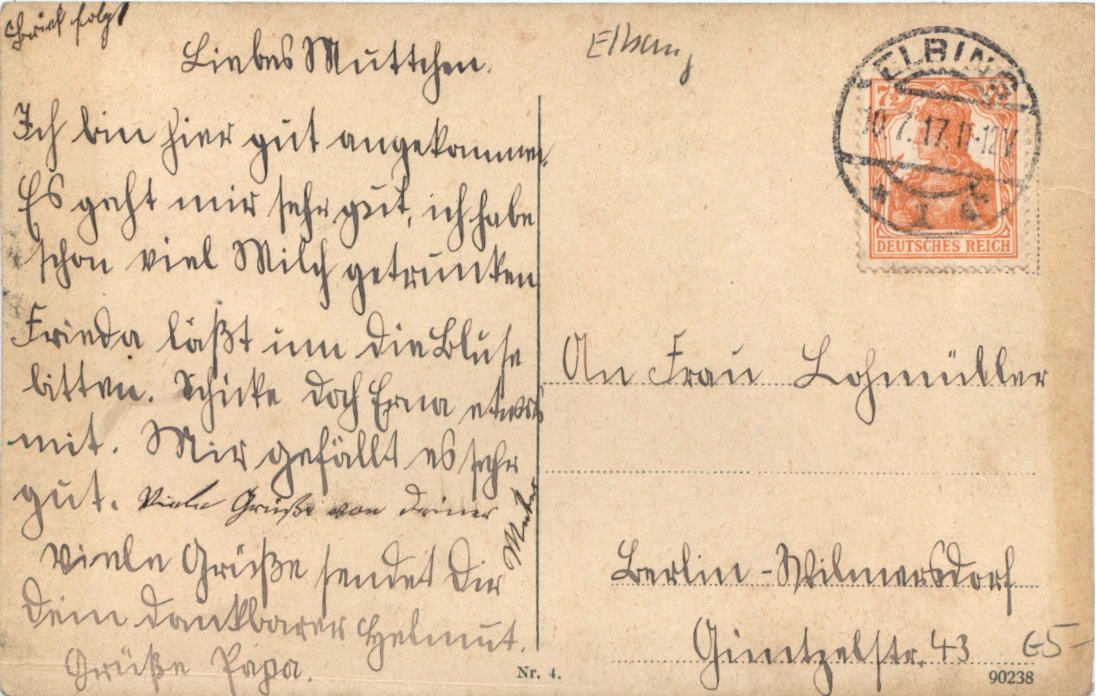 Brief folgt
Liebes Muttchen.
Ich bin hier gut angekommen.
Es geht mir sehr gut, ich habe
schon viel Milch getrunken
Frieda läßt um die Bluse
bitten. Schicke doch Erna etwas
mit. Mir gefällt es sehr
gut. Viele Grüße von Deiner
Mutter
Viele Grüße sendet Dir
Dein dankbarer Helmut.
Grüße Papa.
Elbing
ELBING
10.7.17.11-12V
* 1 c
7½
DEUTSCHES REICH
An Frau Lohmüller
Berlin-Wilmersdorf
Güntzelstr. 43
€5-
Nr. 4.
90238